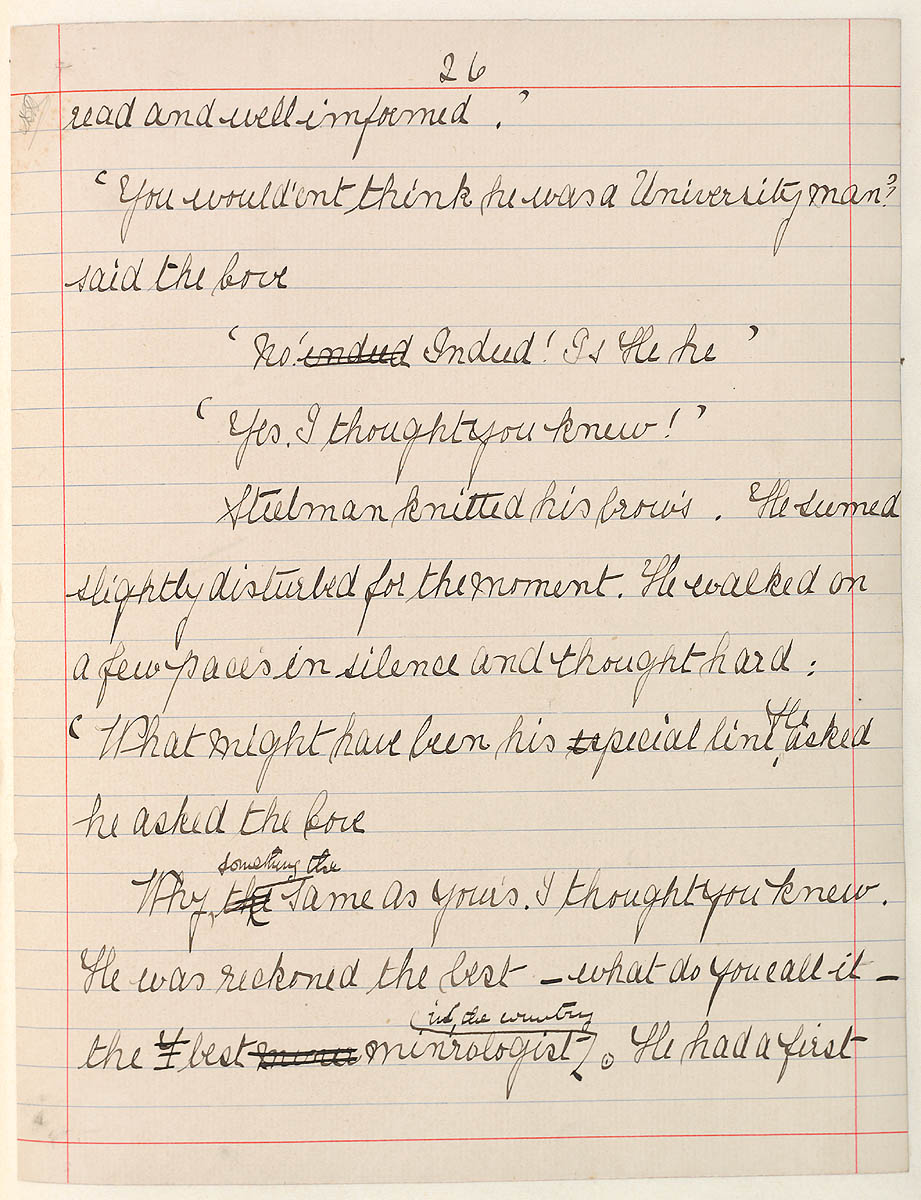 26
read and well informed . '
' You would'ent think he was a University man '
said the Cove
' No! indeed Indeed! Is He he '
' Yes. I thought you knew! '
Steelman knitted his brow's . He seemed
slightly disturbed for the moment. He walked on
a few pace's in silence and thought hard :
' What might have been his special line, He asked
he asked the Cove
something the
Why, the Same as Your's. I thought you knew.
He was reckoned the best – what do you call it –
in the country
the best minrologist. He had a first